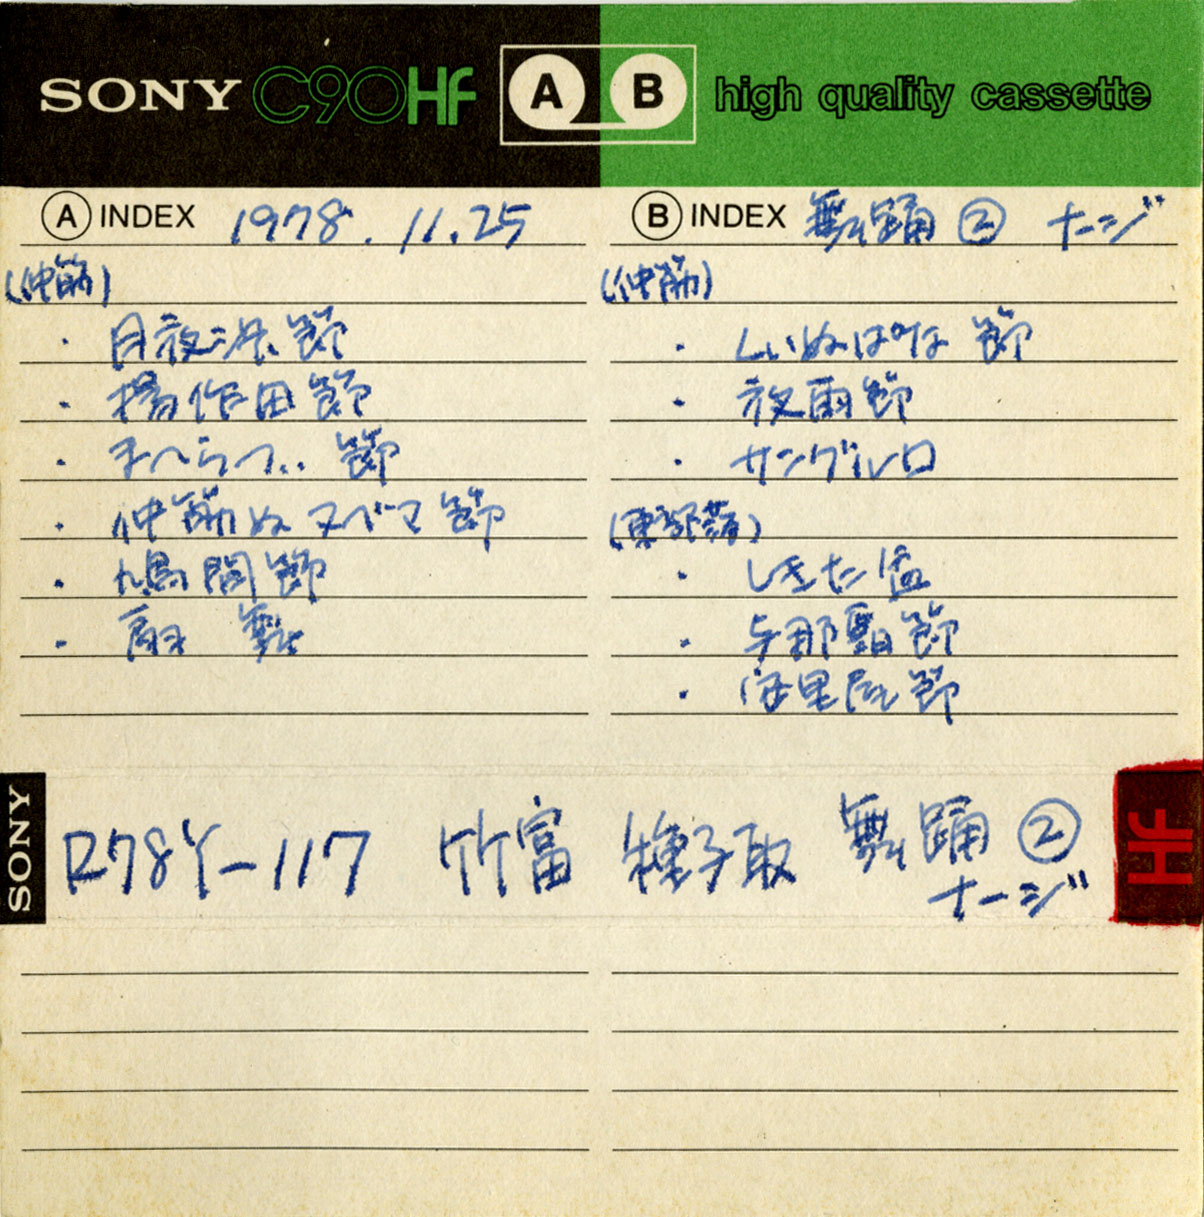 SONY C90HF A B high quality cassette
A INDEX 1978. 11. 25
(仲筋)
・月夜浜節
・揚作田節
・まへらつ.. 節
・仲筋ぬヌベマ節
・鳩間節
・扇舞
B INDEX 舞踊② ナージ
(仲筋)
・しいぬぱな節
・夜雨節
・サングルロ
(東部落)
・しきた盆
・与那覇節
・安里屋節
SONY
R78Y-117 竹富 種子取 舞踊②
ナージ
HF